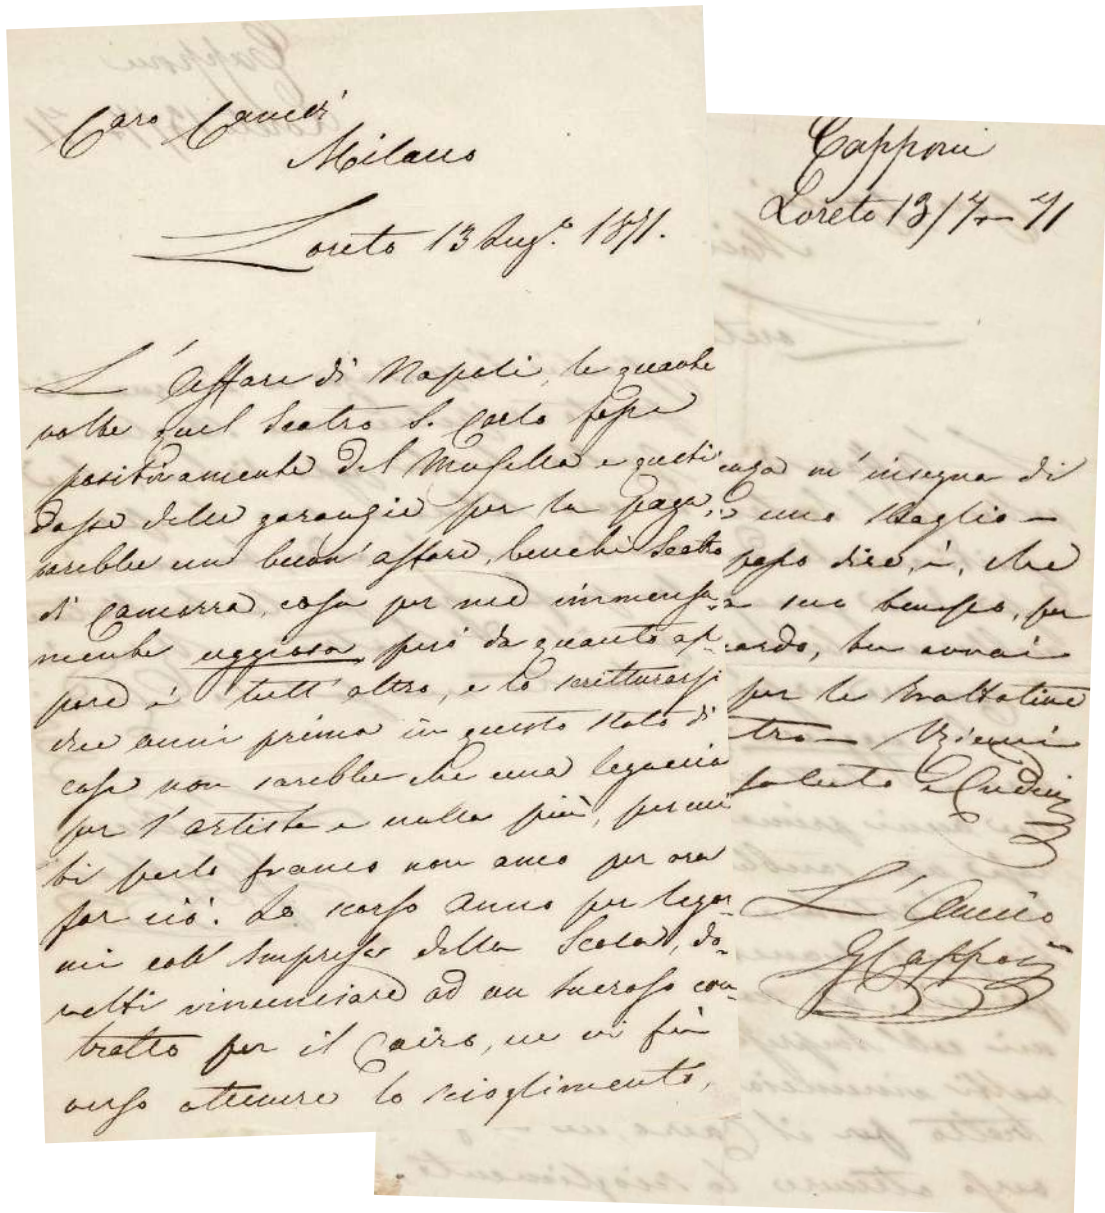 Caro Canedi
Milano
Loreto 13 Lug.º 1871.
L'affare di Napoli, le quante
volte quel Teatro S. Carlo fosse
positivamente del Musella e questi
dasse delle garanzie per la paga,
sarebbe un buon'affare, benchè Teatro
di camorra, cosa per me immensa-
mente uggiosa, però da quanto ap-
pare è tutt'altro, e lo scritturarsi
due anni prima in questo stato di
cose non sarebbe che una legaccia
per l'artista e nulla più, per cui
ti parlo franco non amo per ora
far ciò. Lo scorso anno per legar-
mi coll'Impresa della Scala, do-
vetti rinunciare ad un lucroso con-
tratto per il Cairo, ne vi fù
verso ottenere lo scioglimento,
Capponi
Loreto 13/7 - 71
enza m'insegna di
uno sbaglio -
posso dire, è, che
suo benesso, per
ardo, tu avrai
per le trattative
tro - Vienni
saluto e Credimi
L'Amico
GCapponi